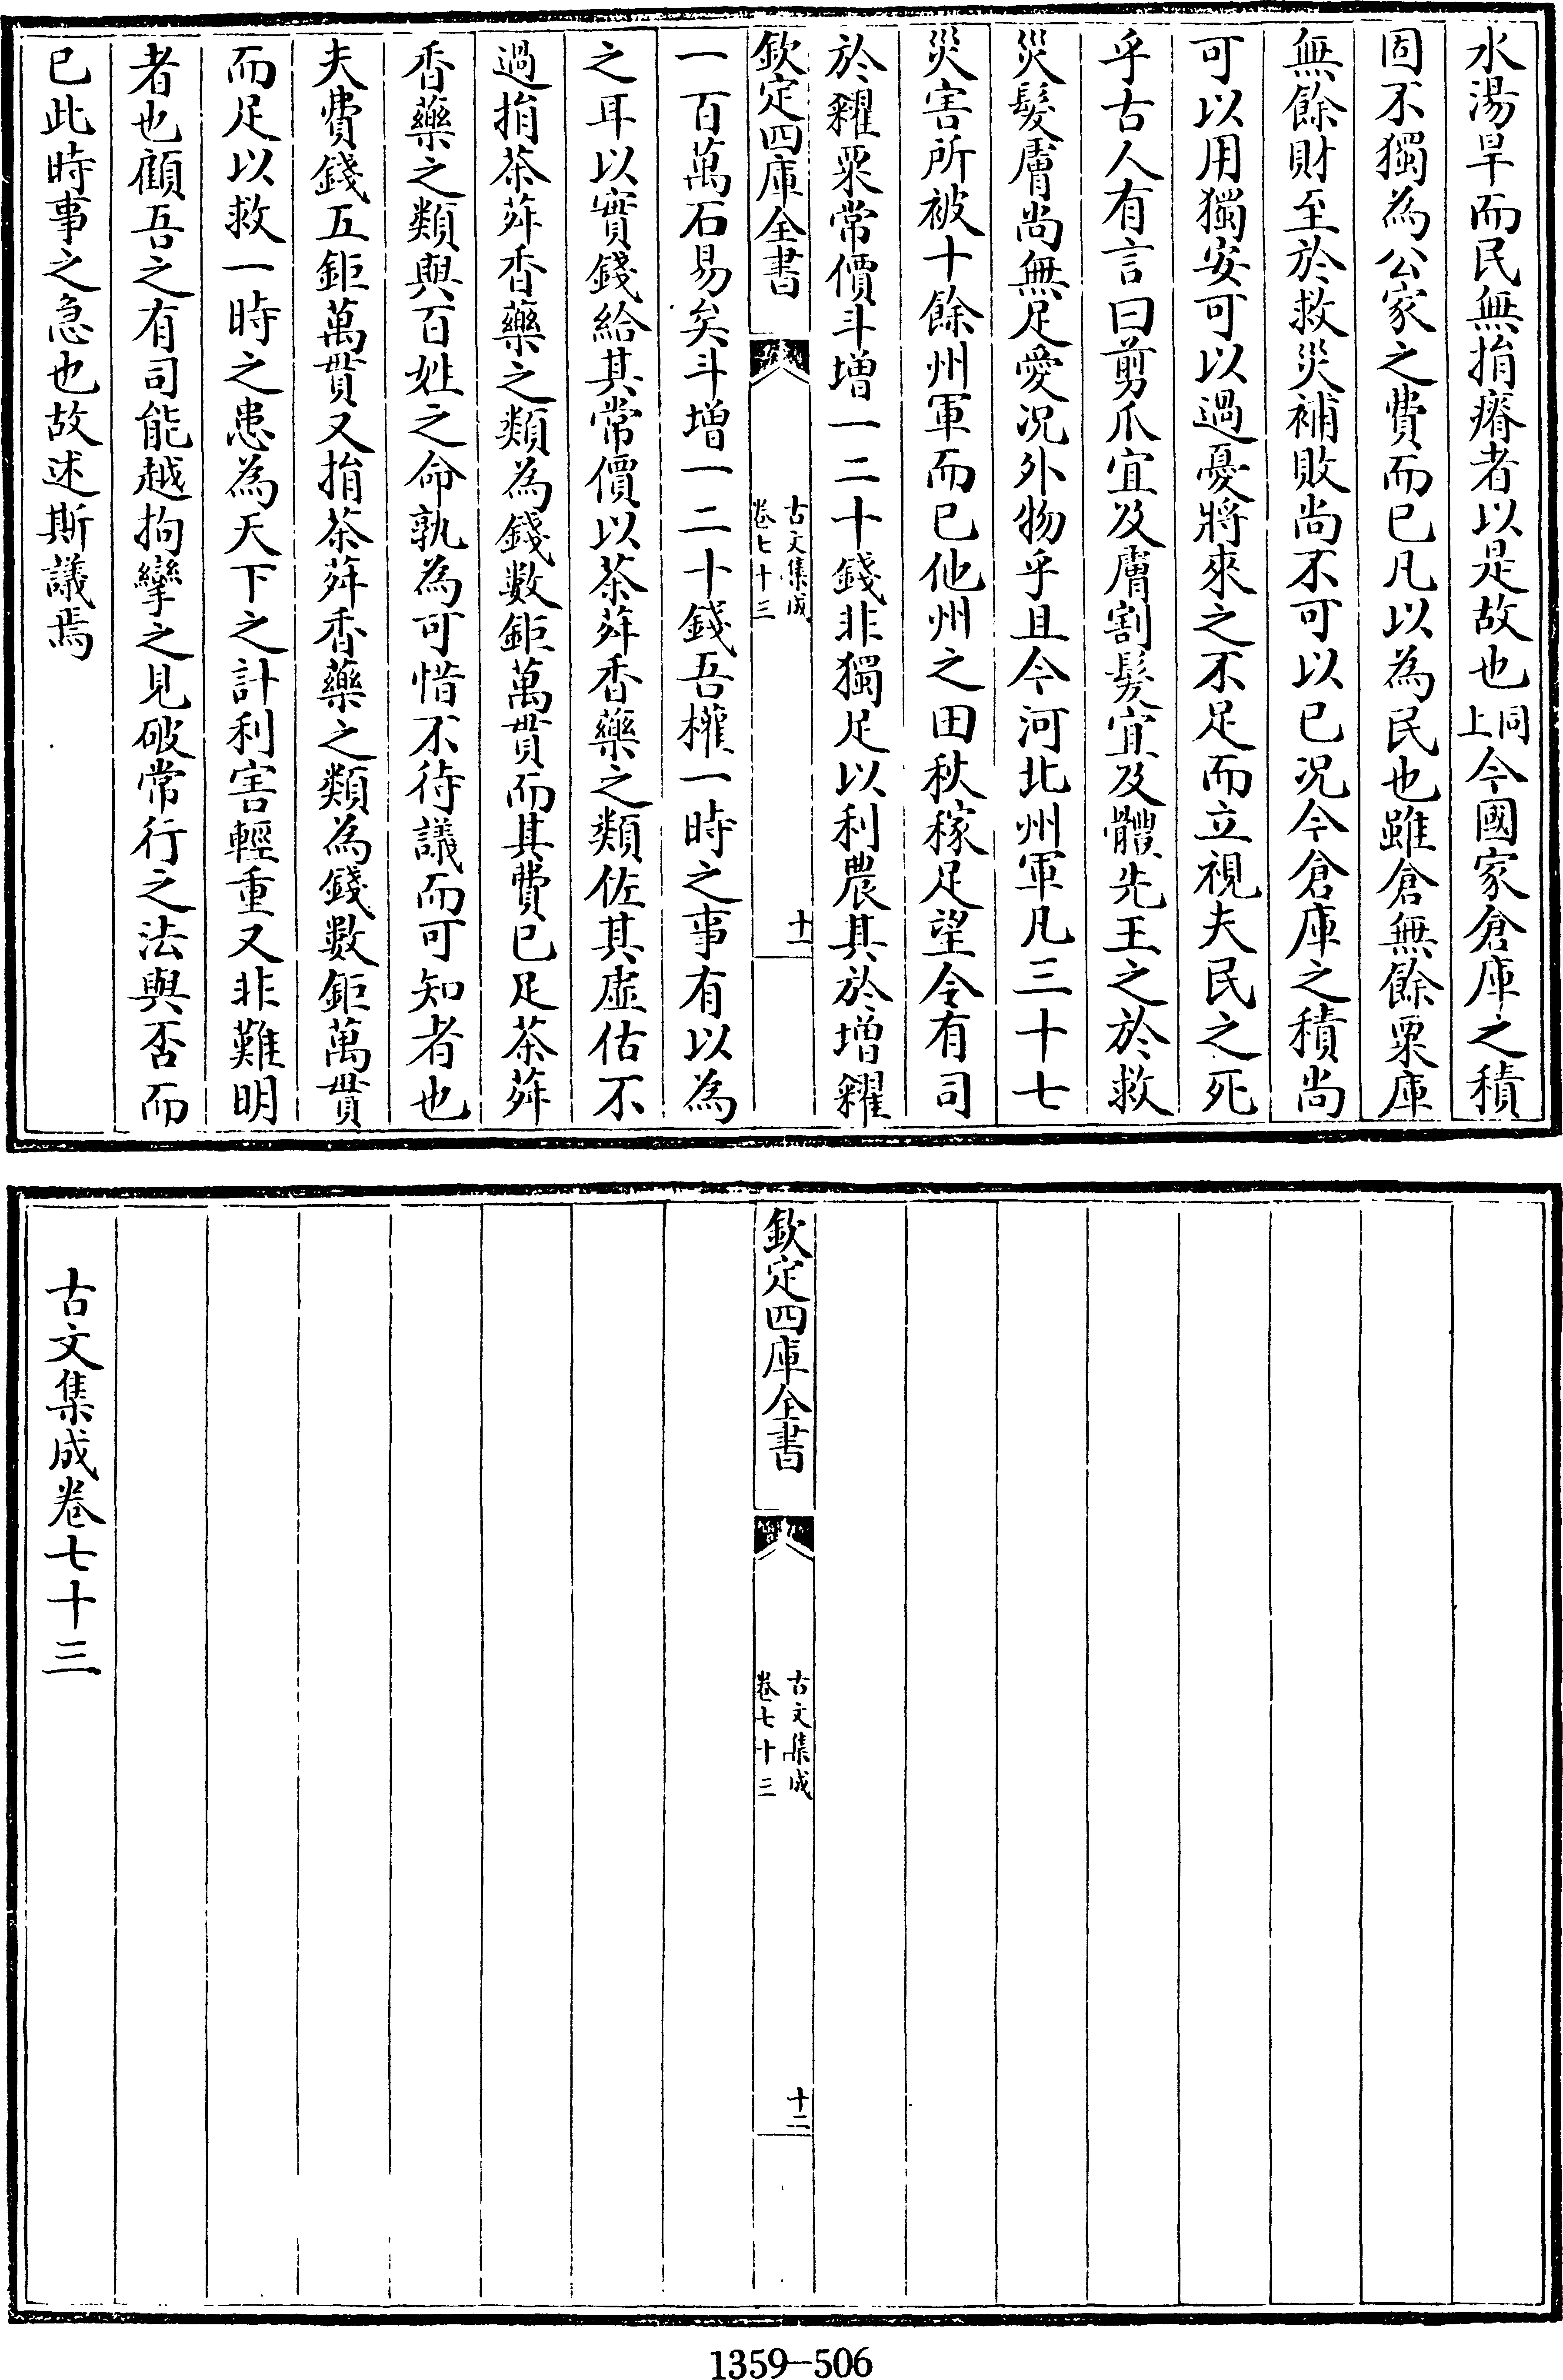 水湯旱而民無捐瘠者以是故也同上今國家倉庫之積
固不獨為公家之費而已凡以為民也雖倉無餘粟庫
無餘財至於救災補敗尚不可以已况今倉庫之積尚
可以用獨安可以過憂將來之不足而立視夫民之死
乎古人有言曰剪爪宜及膚割髮宜及體先王之於救
災髮膚尚無足愛况外物乎且今河北州軍凡三十七
災害所被十餘州軍而已他州之田秋稼足望今有司
於糴粟常價斗增一二十錢非獨足以利農其於增糴
欽定四庫全書
古文集成
卷七十三
十一
一百萬石易矣斗增一二十錢吾權一時之事有以為
之耳以實錢給其常價以茶荈香藥之類佐其虛估不
過捐茶荈香藥之類為錢數鉅萬貫而其費已足茶荈
香藥之類與百姓之命孰為可惜不待議而可知者也
夫費錢五鉅萬貫又捐茶荈香藥之類為錢數鉅萬貫
而足以救一時之患為天下之計利害輕重又非難明
者也顧吾之有司能越拘攣之見破常行之法與否而
已此時事之急也故述斯議焉
欽定四庫全書
古文集成
卷七十三
十二
古文集成卷七十三
1359-506